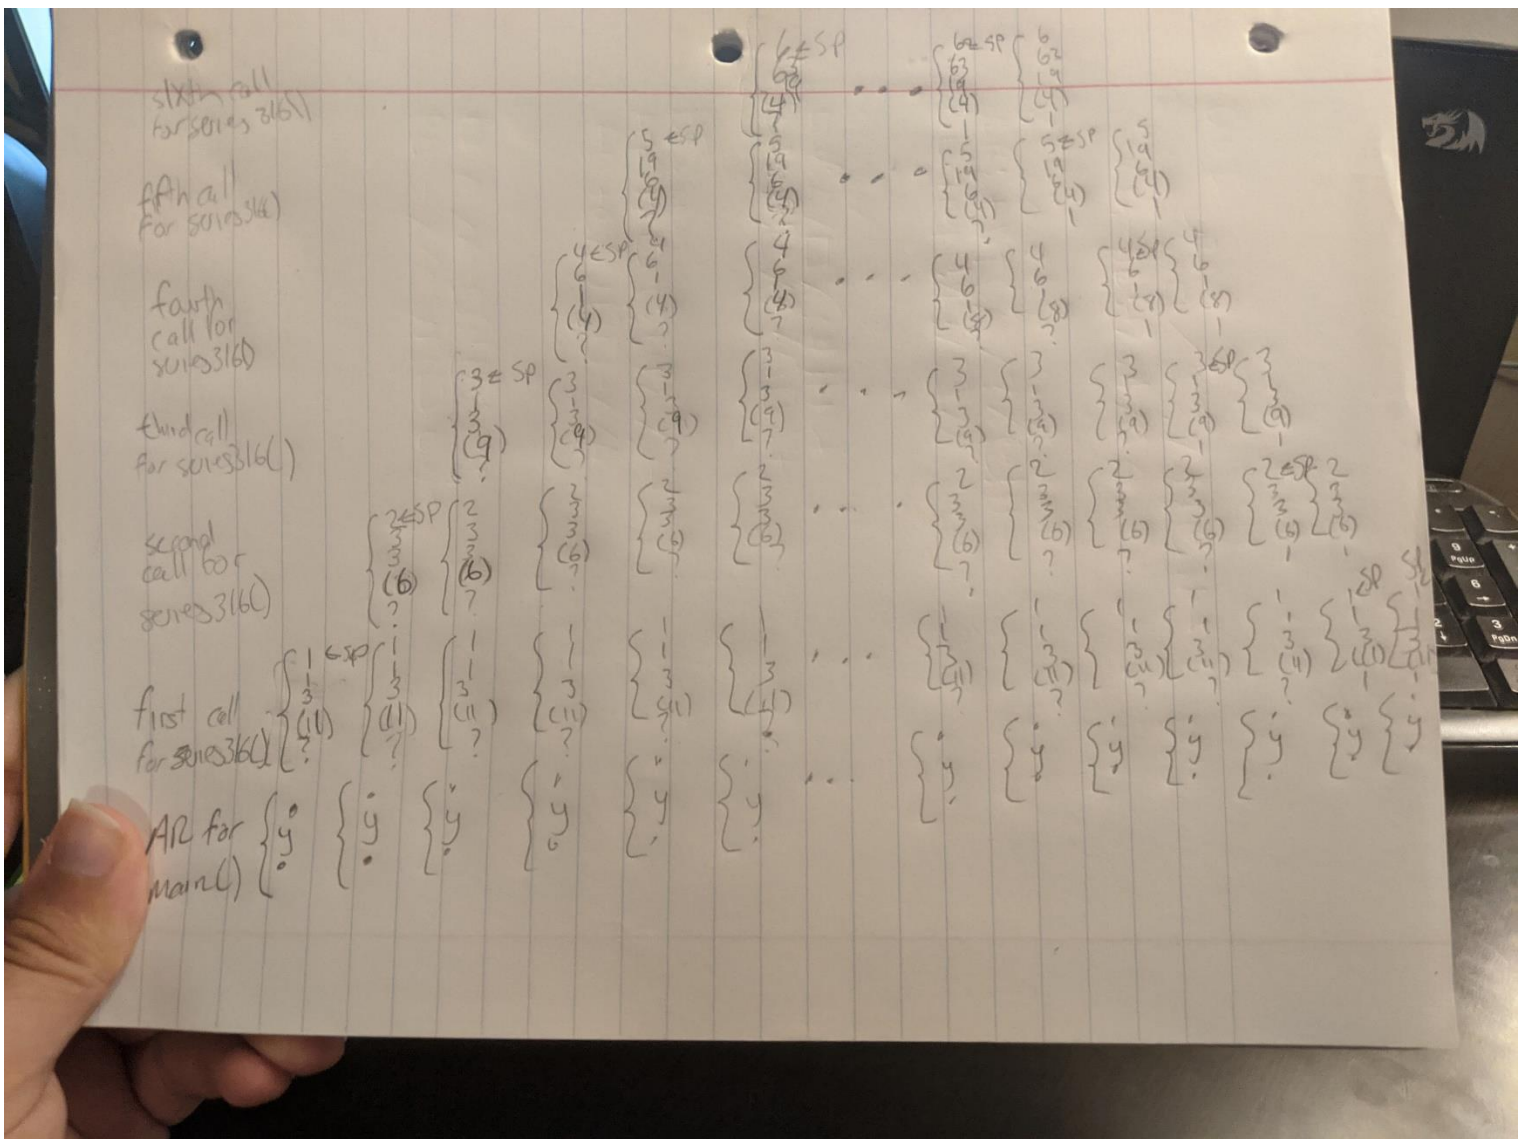 6 ← SP
63
19
(4)
?
. . .
6 ← SP
63
19
(4)
1
6
62
19
(4)
1
sixth call
for series316()
5 ← SP
19
6
(4)
?
5
19
6
(4)
?
. . .
5
19
6
(4)
?
5 ← SP
19
6
(4)
1
5
19
6
(4)
1
fifth call
for series316()
4 ← SP
6
1
(4)
?
4
6
1
(4)
?
4
6
(4)
?
. . .
4
6
?
4
6
(8)
?
4 ← SP
6
1
(8)
1
4
6
1
(8)
1
fourth
call for
series316()
3 ← SP
1
3
(9)
?
3
1
3
(9)
?
3
1
3
(9)
?
3
1
3
(9)
?
. . .
3
1
3
(9)
?
3
1
3
(9)
?
3
1
3
(9)
?
3 ← SP
1
3
(9)
1
3
1
3
(9)
1
third call
for series316()
2 ← SP
3
3
(6)
?
2
3
3
(6)
?
2
3
3
(6)
?
2
3
3
(6)
?
2
3
3
(6)
?
. . .
2
3
3
(6)
?
2
3
3
(6)
?
2
3
3
(6)
?
2
3
3
(6)
?
2 ← SP
3
3
(6)
1
2
3
3
(6)
1
second
call for
series316()
1 ← SP
1
3
(11)
?
1
1
3
(11)
?
1
1
3
(11)
?
1
1
3
(11)
?
1
1
3
(11)
?
1
1
3
(11)
?
. . .
1
1
3
(11)
?
1
1
3
(11)
?
1
1
3
(11)
?
1
1
3
(11)
?
1
1
3
(11)
?
1 ← SP
1
3
(11)
1
SP
1
1
3
first call
for series316()
AR for
main()
y
y
y
y
y
y
. . .
y
y
y
y
y
y
y
9
PgUp
6
→
2
↓
3
PgDn